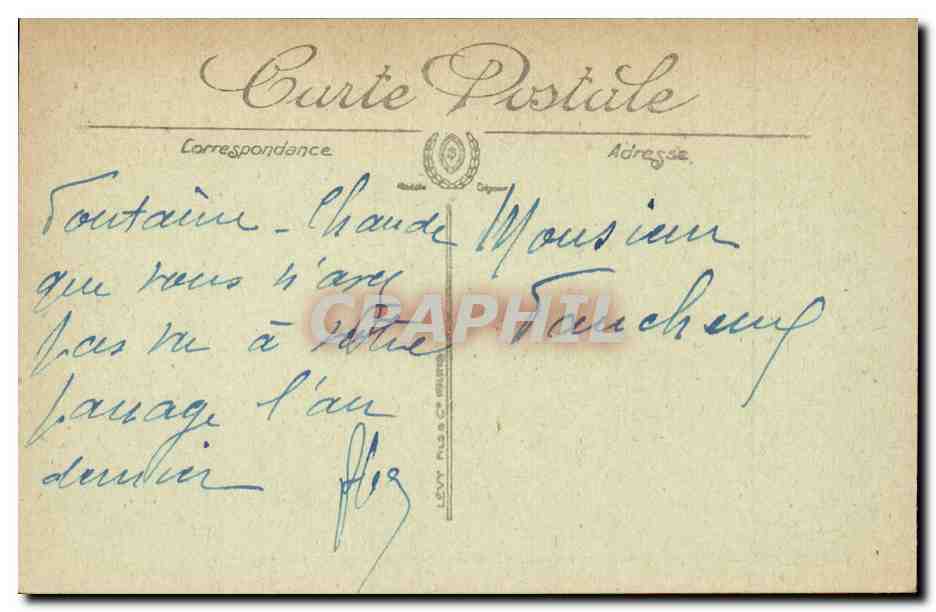 Carte Postale
Correspondance
Adresse
Fontaine - Chaude
que vous n'avez
pas vu à votre
passage l'an
dernier
Monsieur
CRAPHIL
LÉVY FILS & Cie PARIS